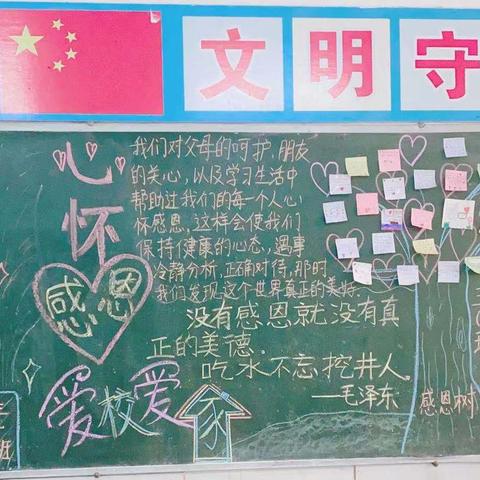 文明守
心怀
感恩
我们对父母的呵护,朋友
的关心,以及学习生活中
帮助过我们的每一个人心
怀感恩,这样会使我们
保持健康的心态,遇事
冷静分析,正确对待,那时
我们发现这个世界真正的美好.
没有感恩就没有真
正的美德.
吃水不忘挖井人。
——毛泽东
爱校爱家
感恩树
班